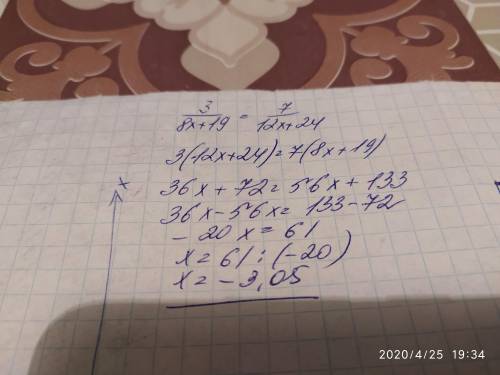 3/(8x+19) = 7/(12x+24)
3(12x+24)=7(8x+19)
36x+72=56x+133
36x-56x= 133-72
-20x=61
x=61:(-20)
x=-3,05
x
2020/4/25 19:34